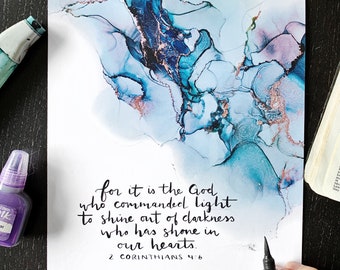 for it is the God
who commanded light
to shine out of darkness
who has shone in
our hearts.
2 CORINTHIANS 4:6